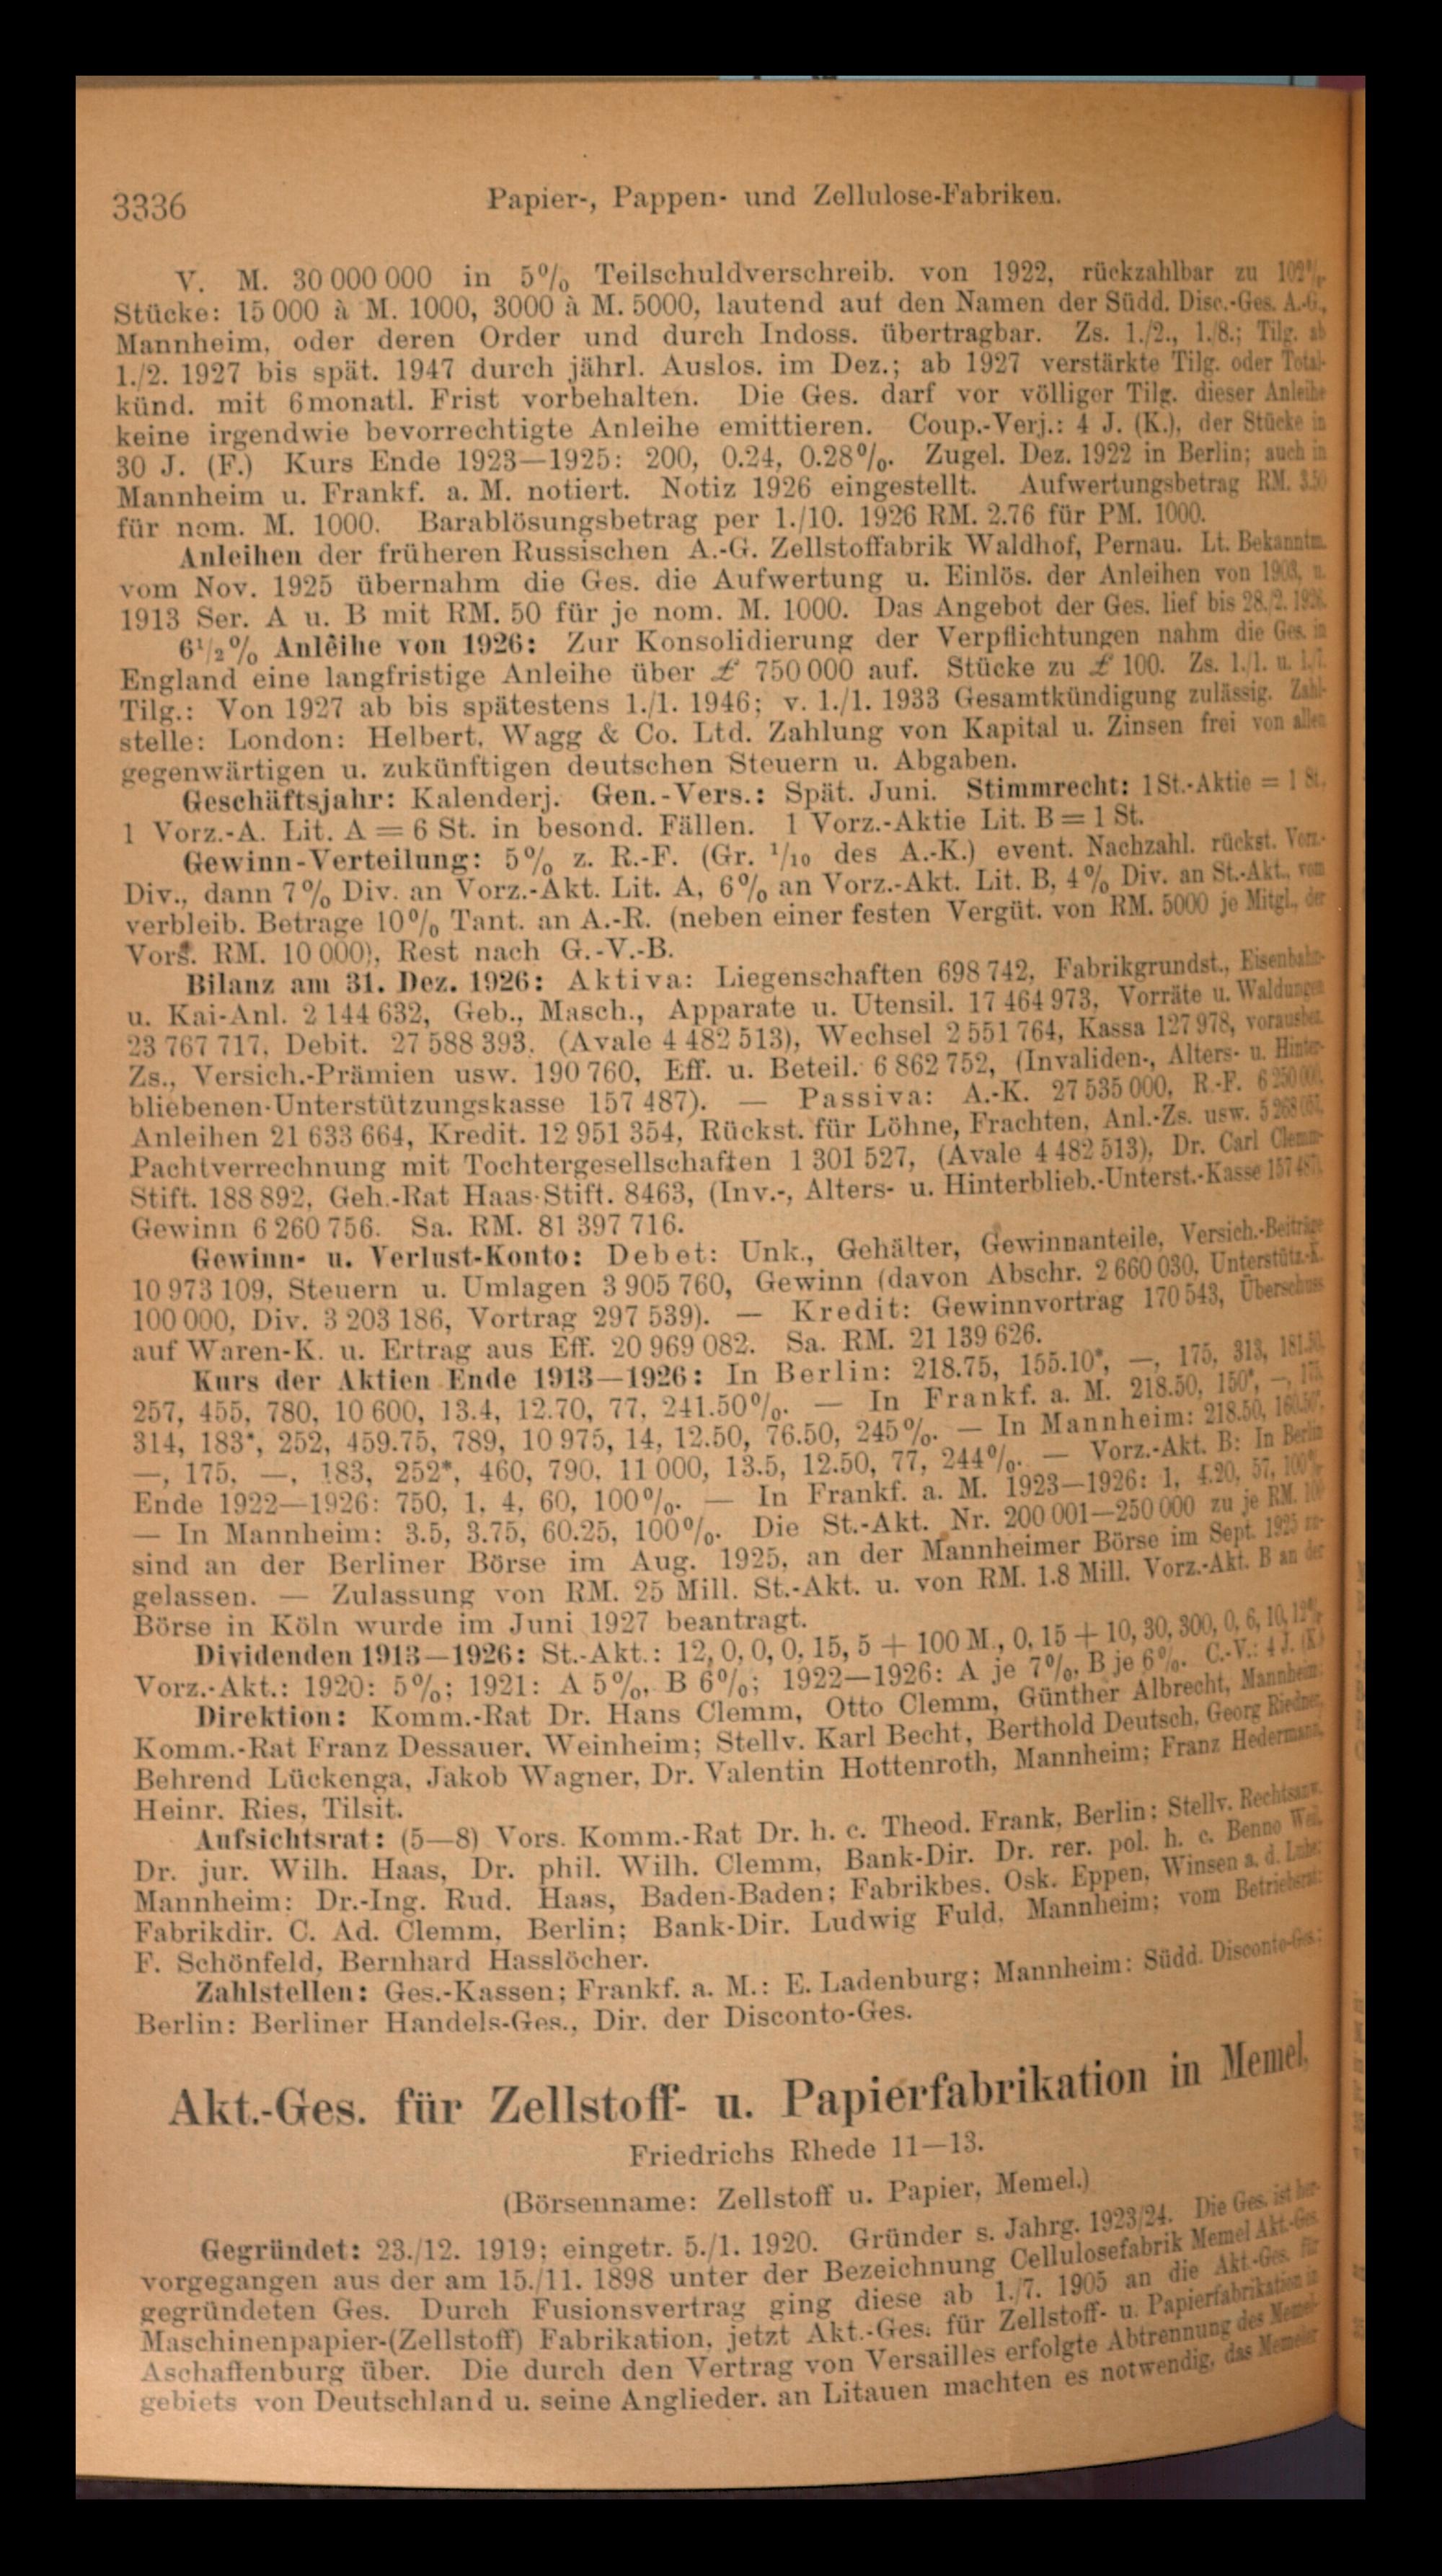 3336
Papier-, Pappen- und Zellulose-Fabriken.
V. M. 30 000 000 in 5% Teilschuldverschreib. von 1922, rückzahlbar zu 102%.
Stücke: 15 000 à M. 1000, 3000 à M. 5000, lautend auf den Namen der Südd. Disc.-Ges. A.-G.,
Mannheim, oder deren Order und durch Indoss. übertragbar. Zs. 1./2., 1./8.; Tilg. ab
1./2. 1927 bis spät. 1947 durch jährl. Auslos. im Dez.; ab 1927 verstärkte Tilg. oder Total-
künd. mit 6monatl. Frist vorbehalten. Die Ges. darf vor völliger Tilg. dieser Anleihe
keine irgendwie bevorrechtigte Anleihe emittieren. Coup.-Verj.: 4 J. (K.), der Stücke in
30 J. (F.) Kurs Ende 1923—1925: 200, 0.24, 0.28%. Zugel. Dez. 1922 in Berlin; auch in
Mannheim u. Frankf. a. M. notiert. Notiz 1926 eingestellt. Aufwertungsbetrag RM. 3.50
für nom. M. 1000. Barablösungsbetrag per 1./10. 1926 RM. 2.76 für PM. 1000.
Anleihen der früheren Russischen A.-G. Zellstoffabrik Waldhof, Pernau. Lt. Bekanntm.
vom Nov. 1925 übernahm die Ges. die Aufwertung u. Einlös. der Anleihen von 1903, u.
1913 Ser. A u. B mit RM. 50 für je nom. M. 1000. Das Angebot der Ges. lief bis 28./2. 1926.
6½% Anleihe von 1926: Zur Konsolidierung der Verpflichtungen nahm die Ges. in
England eine langfristige Anleihe über £ 750 000 auf. Stücke zu £ 100. Zs. 1./1. u. 1./7.
Tilg.: Von 1927 ab bis spätestens 1./1. 1946; v. 1./1. 1933 Gesamtkündigung zulässig. Zahl-
stelle: London: Helbert, Wagg & Co. Ltd. Zahlung von Kapital u. Zinsen frei von allen
gegenwärtigen u. zukünftigen deutschen Steuern u. Abgaben.
Geschäftsjahr: Kalenderj. Gen.-Vers.: Spät. Juni. Stimmrecht: 1 St.-Aktie = 1 St.
1 Vorz.-A. Lit. A = 6 St. in besond. Fällen. 1 Vorz.-Aktie Lit. B = 1 St.
Gewinn-Verteilung: 5% z. R.-F. (Gr. 1/10 des A.-K.) event. Nachzahl. rückst. Vorz.-
Div., dann 7% Div. an Vorz.-Akt. Lit. A, 6% an Vorz.-Akt. Lit. B, 4% Div. an St.-Akt., vom
verbleib. Betrage 10% Tant. an A.-R. (neben einer festen Vergüt. von RM. 5000 je Mitgl., der
Vors. RM. 10 000), Rest nach G.-V.-B.
Bilanz am 31. Dez. 1926: Aktiva: Liegenschaften 698 742, Fabrikgrundst., Eisenbahn-
u. Kai-Anl. 2 144 632, Geb., Masch., Apparate u. Utensil. 17 464 973, Vorräte u. Waldungen
23 767 717, Debit. 27 588 393, (Avale 4 482 513), Wechsel 2 551 764, Kassa 127 978, vorausbez.
Zs., Versich.-Prämien usw. 190 760, Eff. u. Beteil. 6 862 752, (Invaliden-, Alters- u. Hinter-
bliebenen-Unterstützungskasse 157 487). — Passiva: A.-K. 27 535 000, R.-F. 6 250 000,
Anleihen 21 633 664, Kredit. 12 951 354, Rückst. für Löhne, Frachten, Anl.-Zs. usw.
Pachtverrechnung mit Tochtergesellschaften 1 301 527, (Avale 4 482 513), Dr. Carl Clemm-
Stift. 188 892, Geh.-Rat Haas-Stift. 8463, (Inv.-, Alters- u. Hinterblieb.-Unterst.-Kasse 157 487),
Gewinn 6 260 756. Sa. RM. 81 397 716.
Gewinn- u. Verlust-Konto: Debet: Unk., Gehälter, Gewinnanteile, Versich.-Beiträge
10 973 109, Steuern u. Umlagen 3 905 760, Gewinn (davon Abschr. 2 660 030, Unterstütz.-K.
100 000, Div. 3 203 186, Vortrag 297 539). — Kredit: Gewinnvortrag 170 543, Überschuss
auf Waren-K. u. Ertrag aus Eff. 20 969 082. Sa. RM. 21 139 626.
Kurs der Aktien Ende 1913—1926: In Berlin: 218.75, 155.10*, —, 175, 313, 181.50,
257, 455, 780, 10 600, 13.4, 12.70, 77, 241.50%. — In Frankf. a. M. 218.50, 150*, —, 175,
314, 183*, 252, 459.75, 789, 10 975, 14, 12.50, 76.50, 245%. — In Mannheim: 218.50, 160.50*,
—, 175, —, 183, 252*, 460, 790, 11 000, 13.5, 12.50, 77, 244%. — Vorz.-Akt. B: In Berlin
Ende 1922—1926: 750, 1, 4, 60, 100%. — In Frankf. a. M. 1923—1926: 1, 4.20, 57, 100%.
— In Mannheim: 3.5, 3.75, 60.25, 100%. Die St.-Akt. Nr. 200 001—250 000 zu je RM. 100
sind an der Berliner Börse im Aug. 1925, an der Mannheimer Börse im Sept. 1925 zu-
gelassen. — Zulassung von RM. 25 Mill. St.-Akt. u. von RM. 1.8 Mill. Vorz.-Akt. B an der
Börse in Köln wurde im Juni 1927 beantragt.
Dividenden 1913—1926: St.-Akt.: 12, 0, 0, 0, 15, 5 + 100 M., 0, 15 + 10, 30, 300, 0, 6, 10, 12%.
Vorz.-Akt.: 1920: 5%; 1921: A 5%, B 6%; 1922—1926: A je 7%, B je 6%. C.-V.: 4 J. (K.)
Direktion: Komm.-Rat Dr. Hans Clemm, Otto Clemm, Günther Albrecht, Mannheim;
Komm.-Rat Franz Dessauer, Weinheim; Stellv. Karl Becht, Berthold Deutsch, Georg Riedner,
Behrend Lückenga, Jakob Wagner, Dr. Valentin Hottenroth, Mannheim; Franz Hedermann,
Heinr. Ries, Tilsit.
Aufsichtsrat: (5—8) Vors. Komm.-Rat Dr. h. c. Theod. Frank, Berlin; Stellv. Rechtsanw.
Dr. jur. Wilh. Haas, Dr. phil. Wilh. Clemm, Bank-Dir. Dr. rer. pol. h. c. Benno Weil,
Mannheim; Dr.-Ing. Rud. Haas, Baden-Baden; Fabrikbes. Osk. Eppen, Winsen a. d. Luhe;
Fabrikdir. C. Ad. Clemm, Berlin; Bank-Dir. Ludwig Fuld, Mannheim; vom Betriebsrat:
F. Schönfeld, Bernhard Hasslöcher.
Zahlstellen: Ges.-Kassen; Frankf. a. M.: E. Ladenburg; Mannheim: Südd. Disconto-Ges.;
Berlin: Berliner Handels-Ges., Dir. der Disconto-Ges.
Akt.-Ges. für Zellstoff- u. Papierfabrikation in Memel,
Friedrichs Rhede 11—13.
(Börsenname: Zellstoff u. Papier, Memel.)
Gegründet: 23./12. 1919; eingetr. 5./1. 1920. Gründer s. Jahrg. 1923/24. Die Ges. ist her-
vorgegangen aus der am 15./11. 1898 unter der Bezeichnung Cellulosefabrik Memel Akt.-Ges.
gegründeten Ges. Durch Fusionsvertrag ging diese ab 1./7. 1905 an die Akt.-Ges. für
Maschinenpapier-(Zellstoff) Fabrikation, jetzt Akt.-Ges. für Zellstoff- u. Papierfabrikation in
Aschaffenburg über. Die durch den Vertrag von Versailles erfolgte Abtrennung des Memel-
gebiets von Deutschland u. seine Anglieder. an Litauen machten es notwendig, das Memeler